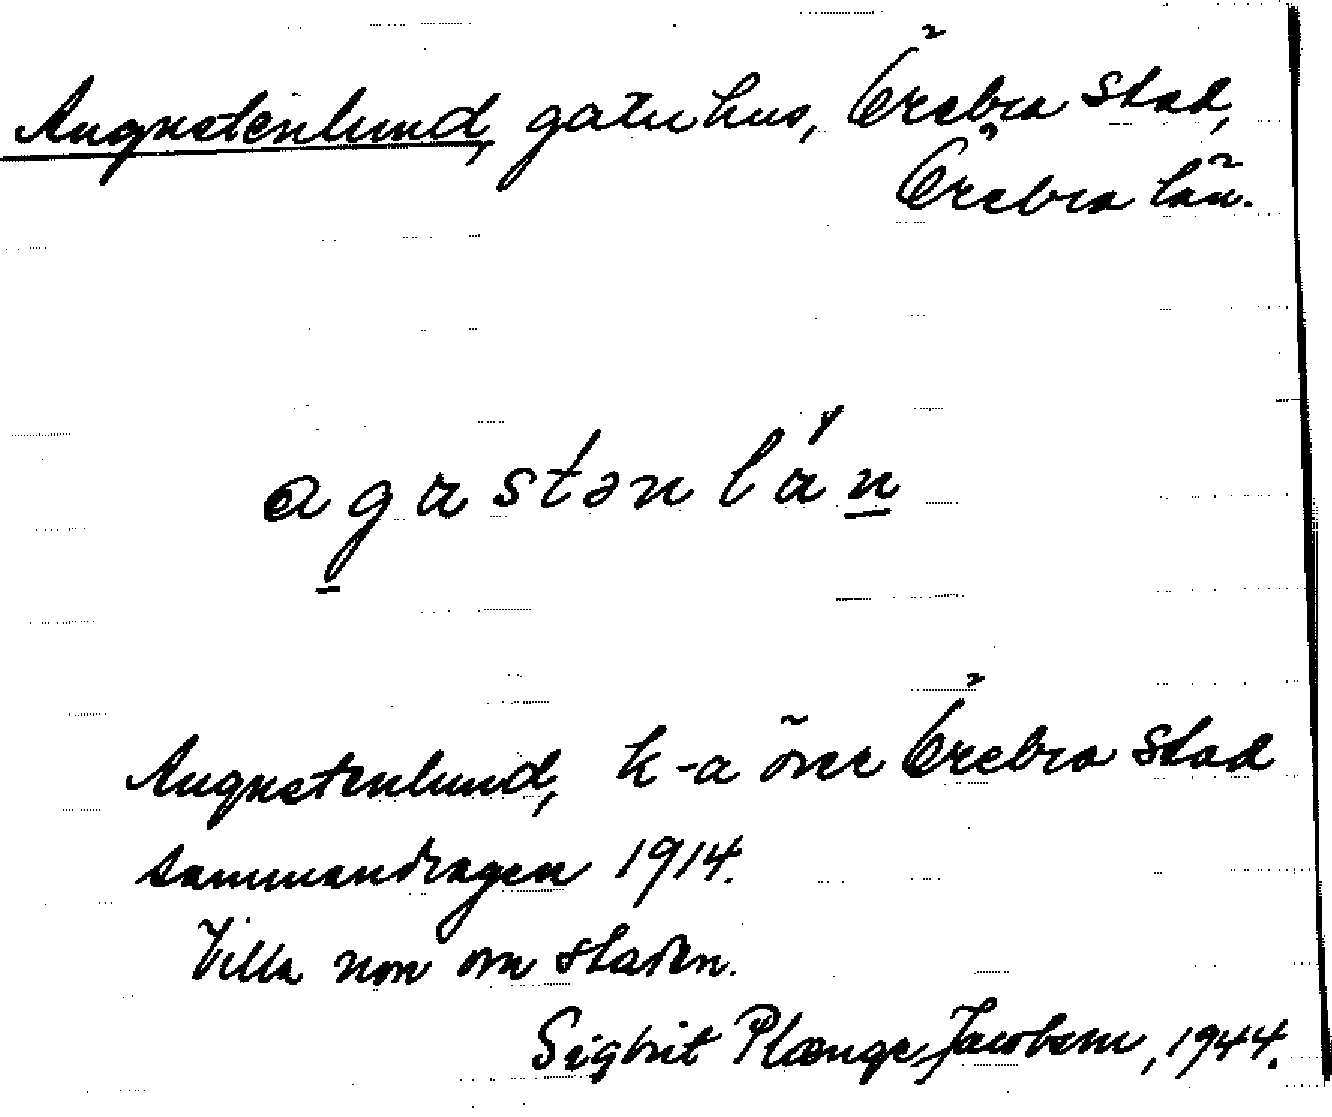 Augustenlund, gatuhus, Örebro stad,
Örebro län.
agastənlán
Augustenlund, k-a över Örebro stad
sammandragen 1914.
Villa norr om staden.
Sigbrit Plænge Jacobson, 1944.